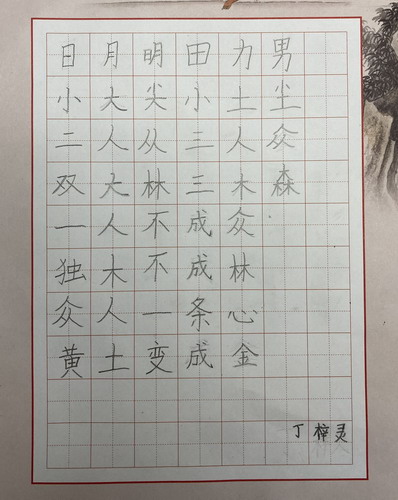 日月明田力男
小大尖小土尘
二人从三人众
双大林三木森
一人不成众
独木不成林
众人一条心
黄土变成金
丁梓灵